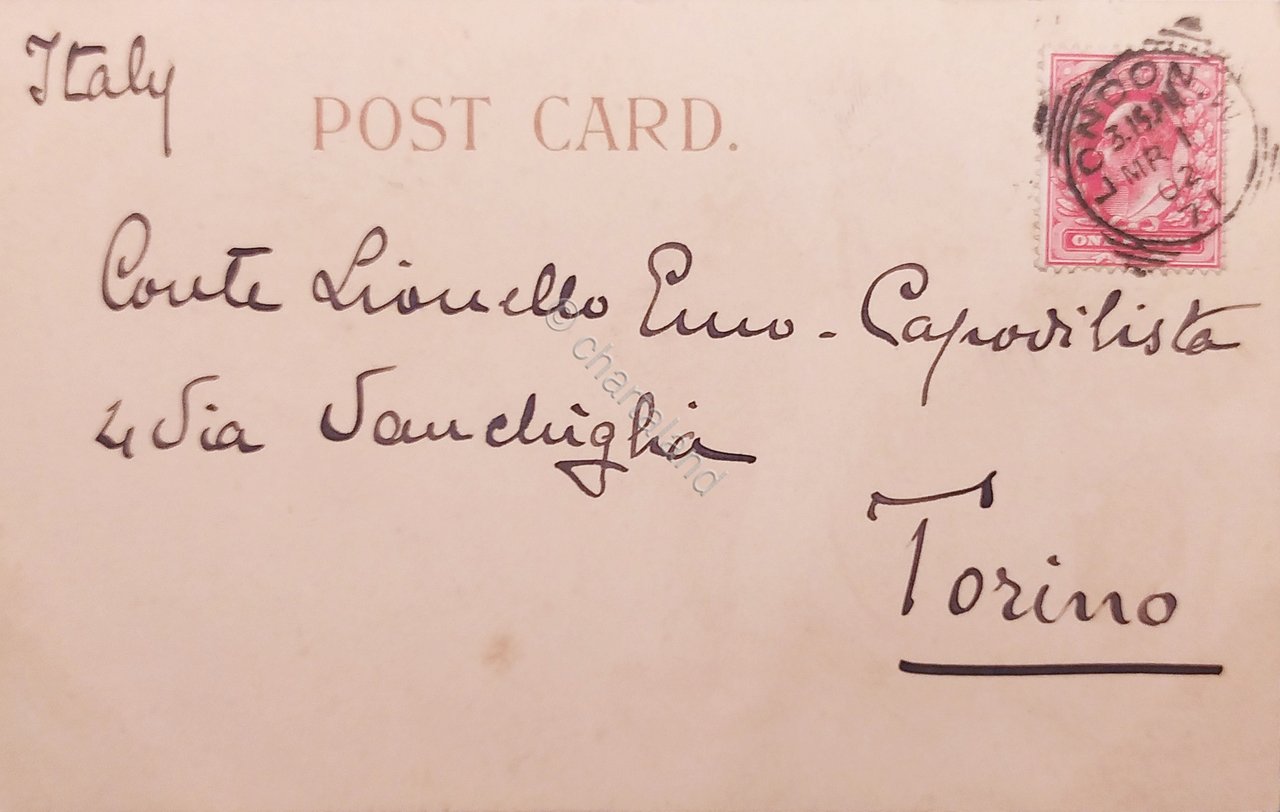 Italy
POST CARD.
LONDON. W
3.15 PM
MR 1
02
71
ONE
Conte Lionello Emo - Capodilista
4 Via Vanchiglia
Torino
© chartaland